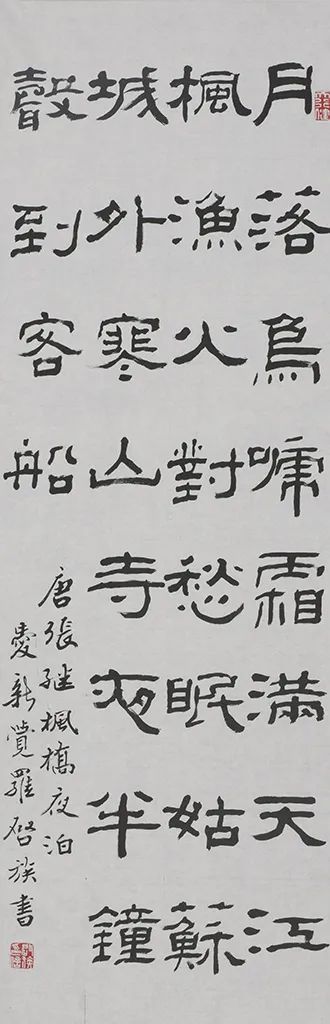 月落烏啼霜滿天江
楓漁火對愁眠姑蘇
城外寒山寺夜半鐘
聲到客船
唐張继楓橋夜泊
愛新覺羅啓族書